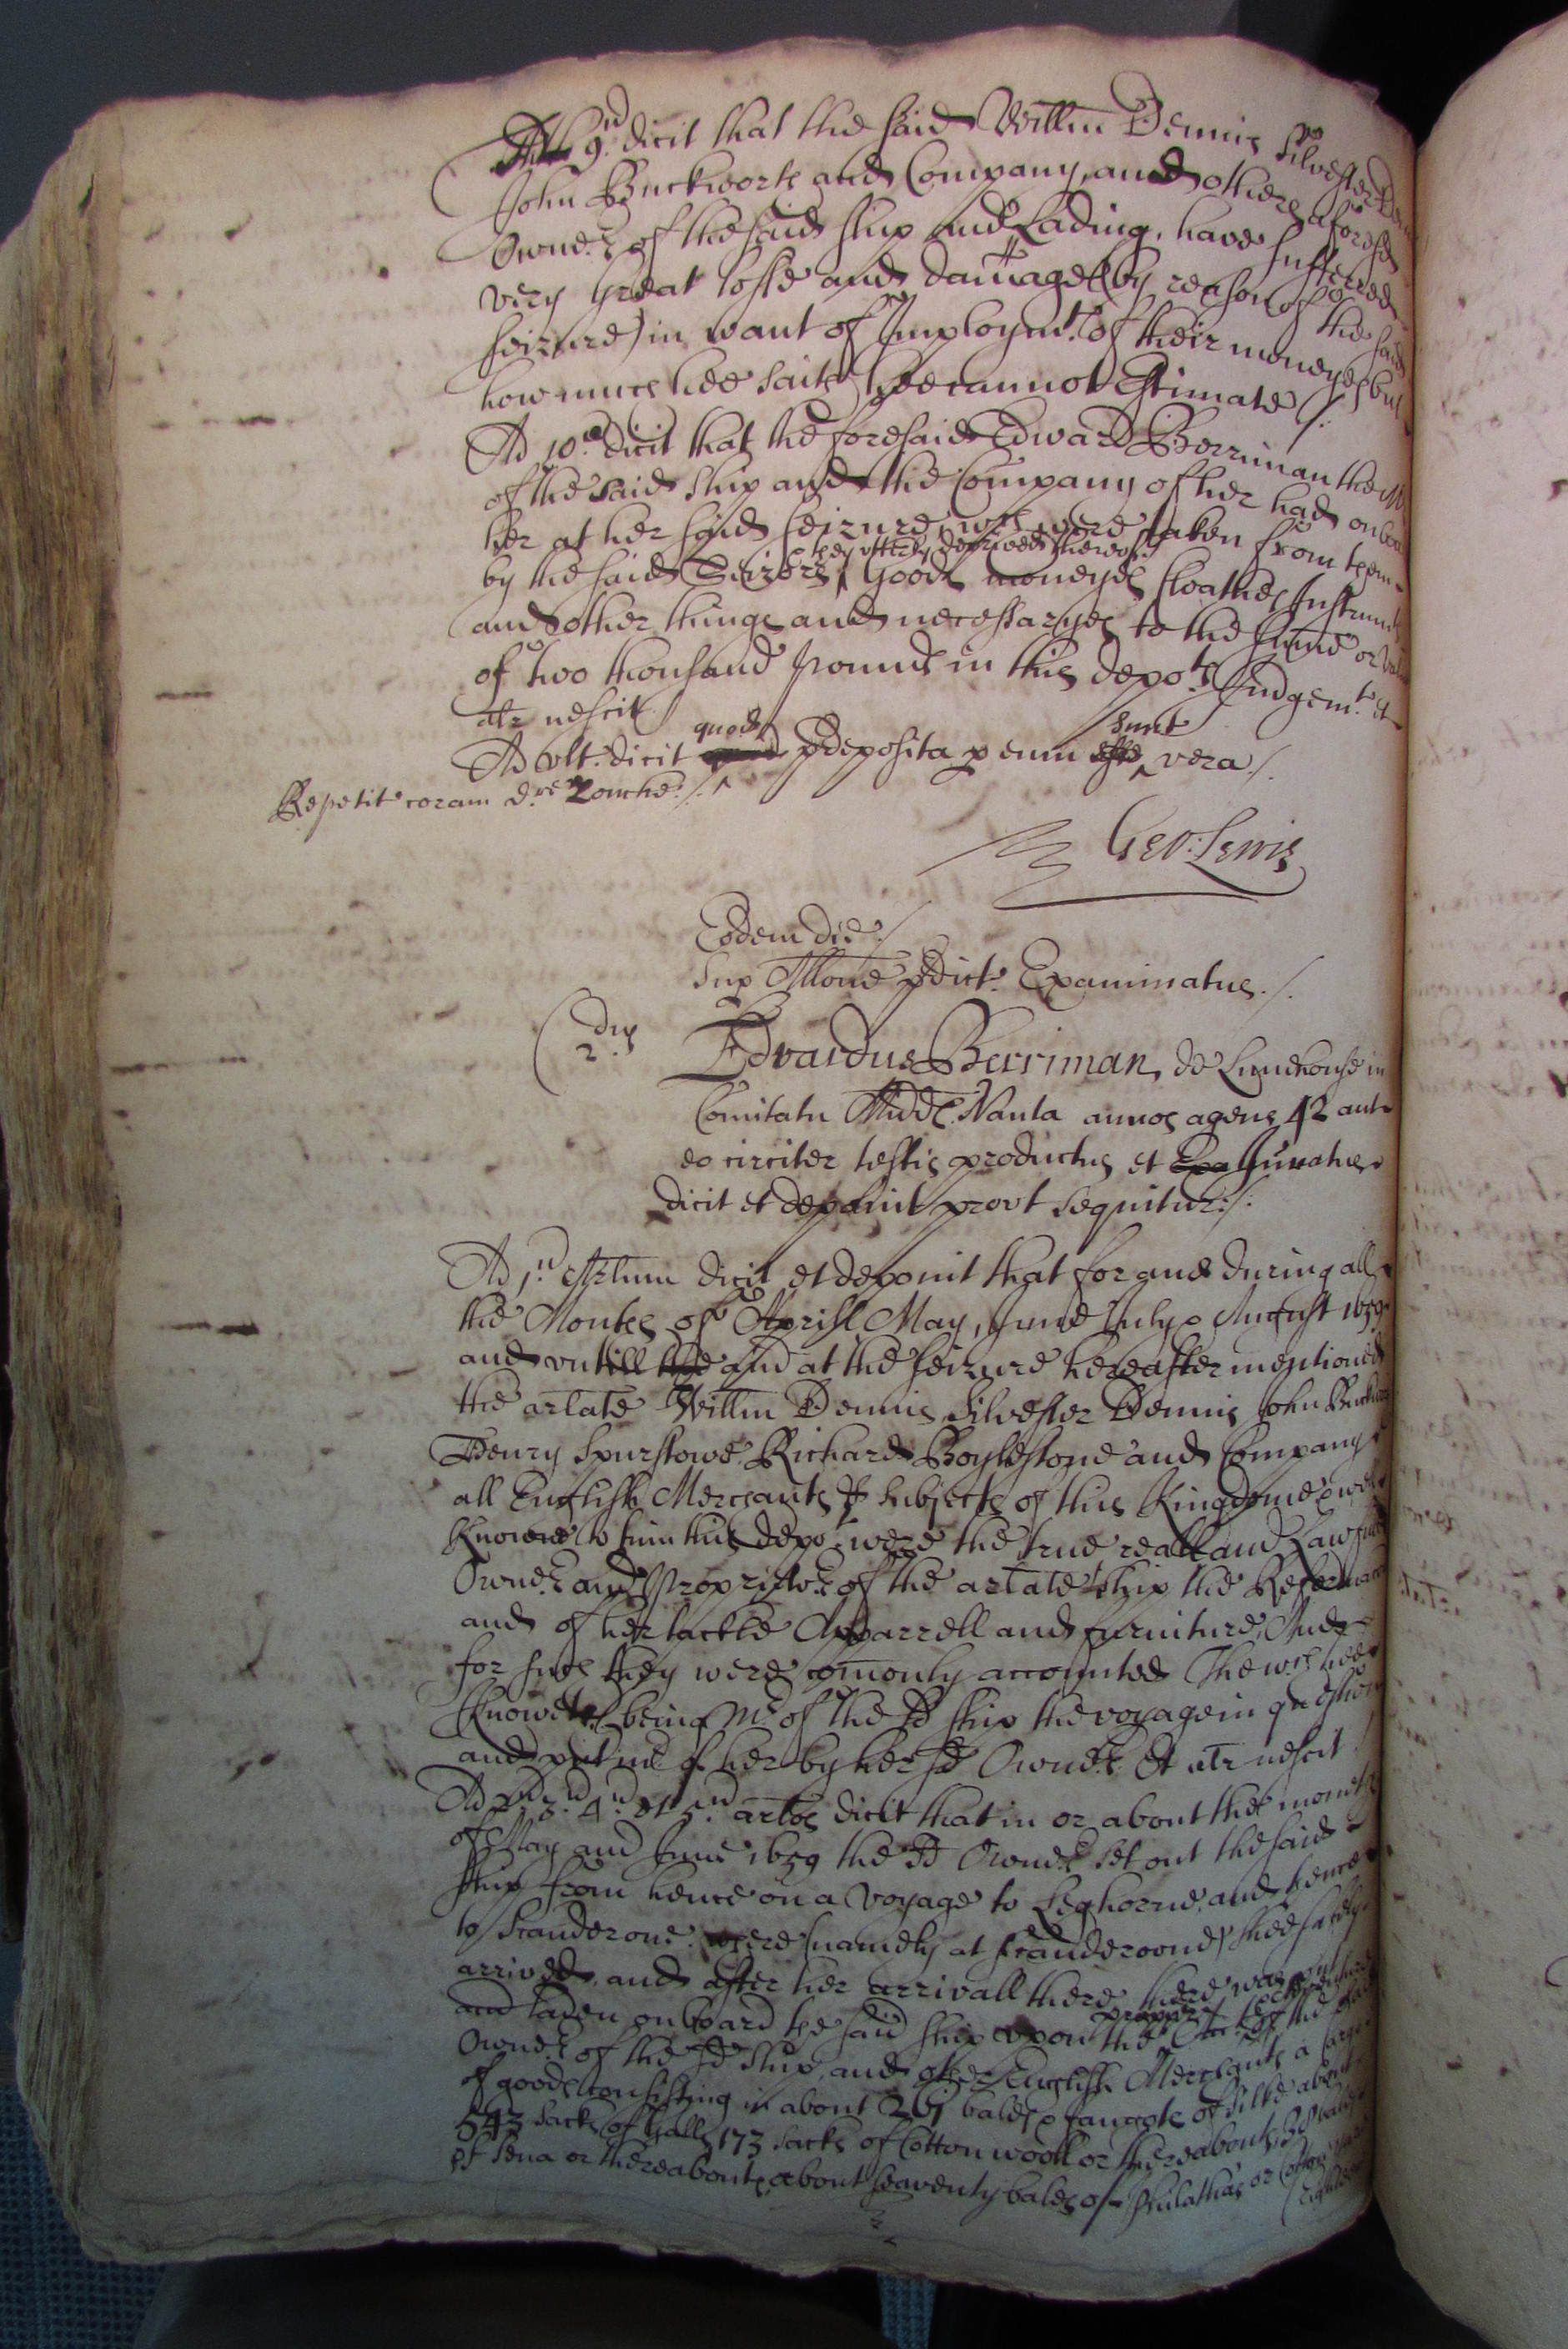 Ad 9.ᵘᵈ dicit that the said Willm Dennis Silvester Dennis
John Buckworth and Company, and others aforesd
Owners of the said ship and Lading, have suffered
very great losse and damage (by reason of the said
seizure) in want of Imploymt. of their moneyes but
how much hee saith hee cannot Estimate /.
Ad 10.ᵘᵈ dicit that the foresaid Edward Berriman the Mr
of the said ship and the Company of her had on board
her at her said seizure, wch were taken from them
they utterly deprived thereof
by the said Seizers, Goods moneyes Cloathes Instrumts
and other things and necessaryes to the summe or value
of two thousand pounds in this depots Judgemt. et
alr nescit
quod sunt
Ad vlt. dicit pdeposita p eum esse vera /.
Repetit coram dre Zouche /.
Geo: Lewis
Eodem die /
Sup Allone pdict. Examinatus. /.
dns
2.
Edvardus Berriman de Limehouse in
Comitatu Midd. Nauta annos agens 42 aut
eo circiter testis productus et Exa Juratus
dicit et deponit prout sequitur. /.
Ad 1.ᵘ Artlum dicit et deponit that for and during all
the Months of Aprill May, June July & August 1659
and untill the and at the seizure hereafter mentioned
the arlate Willm Dennis Silvester Dennis John Buckworth
Henry Spurstowe Richard Boylestone and Company
all English Merchants & subjects of this Kingdome & well
Knowne to him this depot were the true reall and Lawfull
Owners and Proprietors of the arlate ship the Reformation
and of her tackle Apparrell and furniture, And
for such they were comonly accounted The wch hee
knoweth being Mr of the sd ship the voyage in question
and put in of her by her sd Owners. Et alr nescit
Ad 2ᵈ 3.ᵘ 4.ᵘ et 5.ᵘ arlos dicit that in or about the moneths
of May and June 1659 the sd Owners set out the said
ship from hence on a voyage to Leghorne, and thence
to Scanderone where (namely at Scanderoone) shee safely
arrived, and after her arrivall there, there was put
and laden on board the said ship upon the proper Acct. of the said
Owners of the sd ship, and other English Merchants a Cargo
of goods consisting in about 261 bales & fangots of silke about
543 sacks of Galls, 173 sacks of Cotton wooll or thereabouts, 38 bales
of Sena or thereabouts, about seaventy bales of Phulathas or Cotton
(eighteen